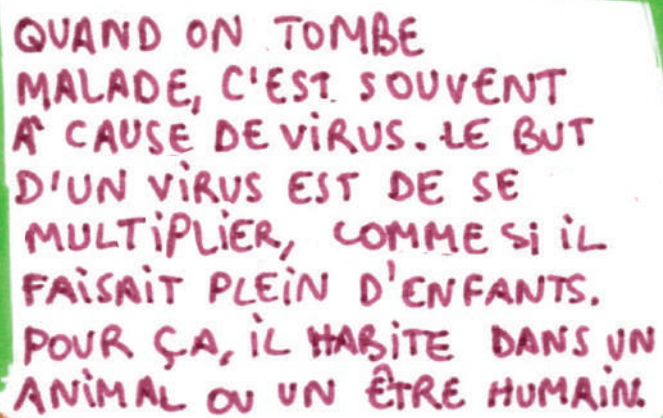 QUAND ON TOMBE
MALADE, C'EST SOUVENT
À CAUSE DE ViRUS. LE BUT
D'UN ViRUS EST DE SE
MULTiPLiER, COMME Si iL
FAiSAiT PLEiN D'ENFANTS.
POUR ÇA, iL HABiTE DANS UN
ANiMAL OU UN ÊTRE HUMAiN.